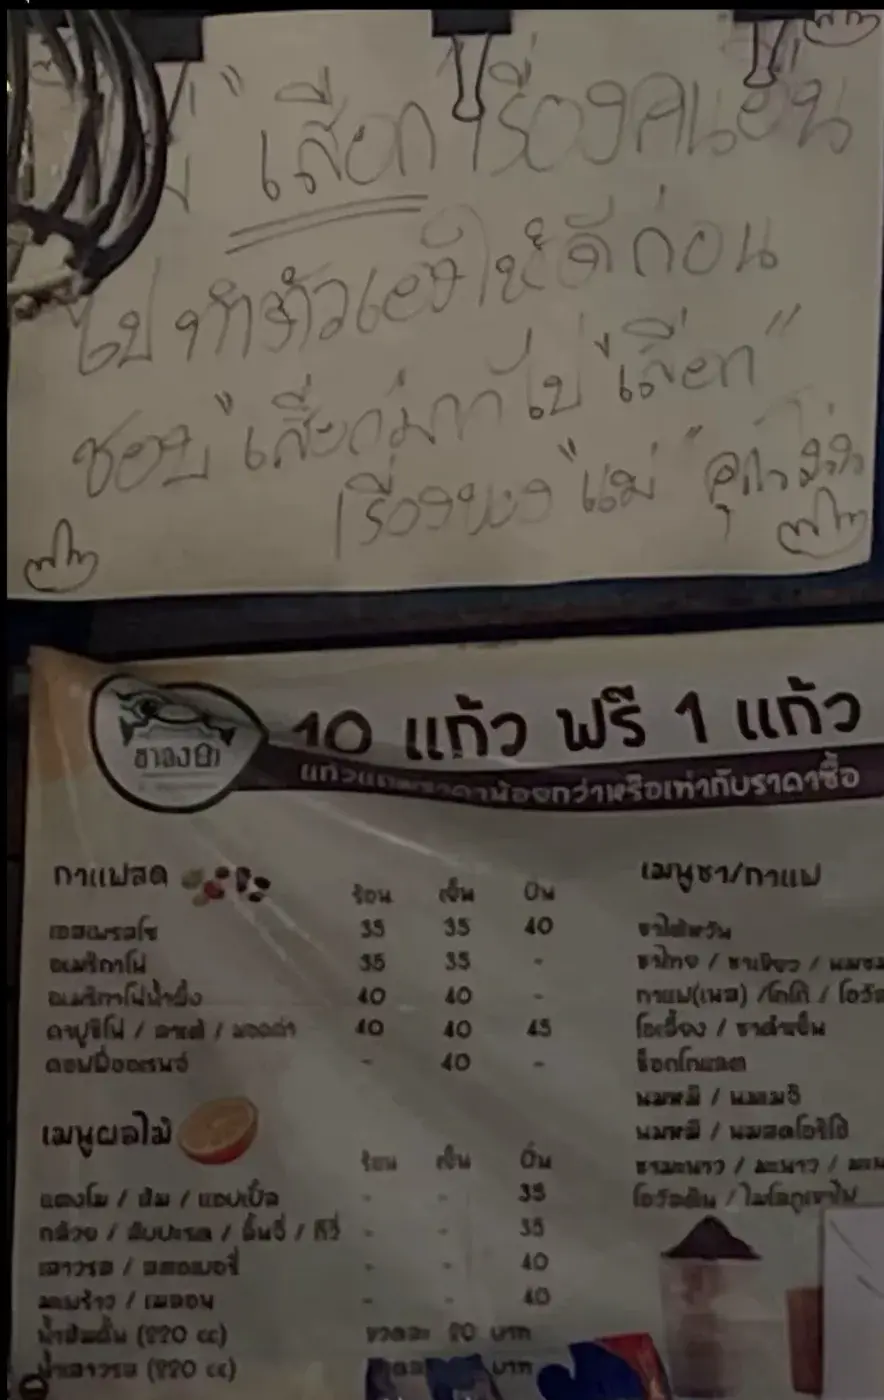 "เสือก" เรื่องคนอื่น
ไปทำตัวเองให้ดีก่อน
ชอบ "เสือกมากไป "เสือก"
เรื่องของ "แม่"
10 แก้ว ฟรี 1 แก้ว
แก้วแถมราคาน้อยกว่าหรือเท่ากับราคาซื้อ
กาแฟสด
ร้อน เย็น ปั่น
เอสเพรสโซ 35 35 40
อเมริกาโน่ 35 35 -
อเมริกาโน่น้ำผึ้ง 40 40 -
คาปูชิโน่ / ลาเต้ / มอคค่า 40 40 45
คอฟฟี่ออเรนจ์ - 40 -
เมนูผลไม้
ร้อน เย็น ปั่น
แตงโม / ส้ม / แอปเปิ้ล - - 35
กล้วย / สับปะรด / ลิ้นจี่ / กีวี่ - - 35
เสาวรส / สตอเบอรี่ - - 40
มะพร้าว / เมลอน - - 40
น้ำส้มคั้น (220 cc) ขวดละ 20 บาท
น้ำเสาวรส (220 cc) บาท
เมนูชา/กาแฟ
ชาไต้หวัน
ชาไทย / ชาเขียว / นมชม
กาแฟ(เนส) /โกโก้ / โอวัล
โอเลี้ยง / ชาดำเย็น
ช็อกโกแลต
นมหมี / นมเย็น
นมหมี / นมสดโอริโอ้
ชามะนาว / มะนาว /
โอวัลติน / ไมโลภูเขาไฟ